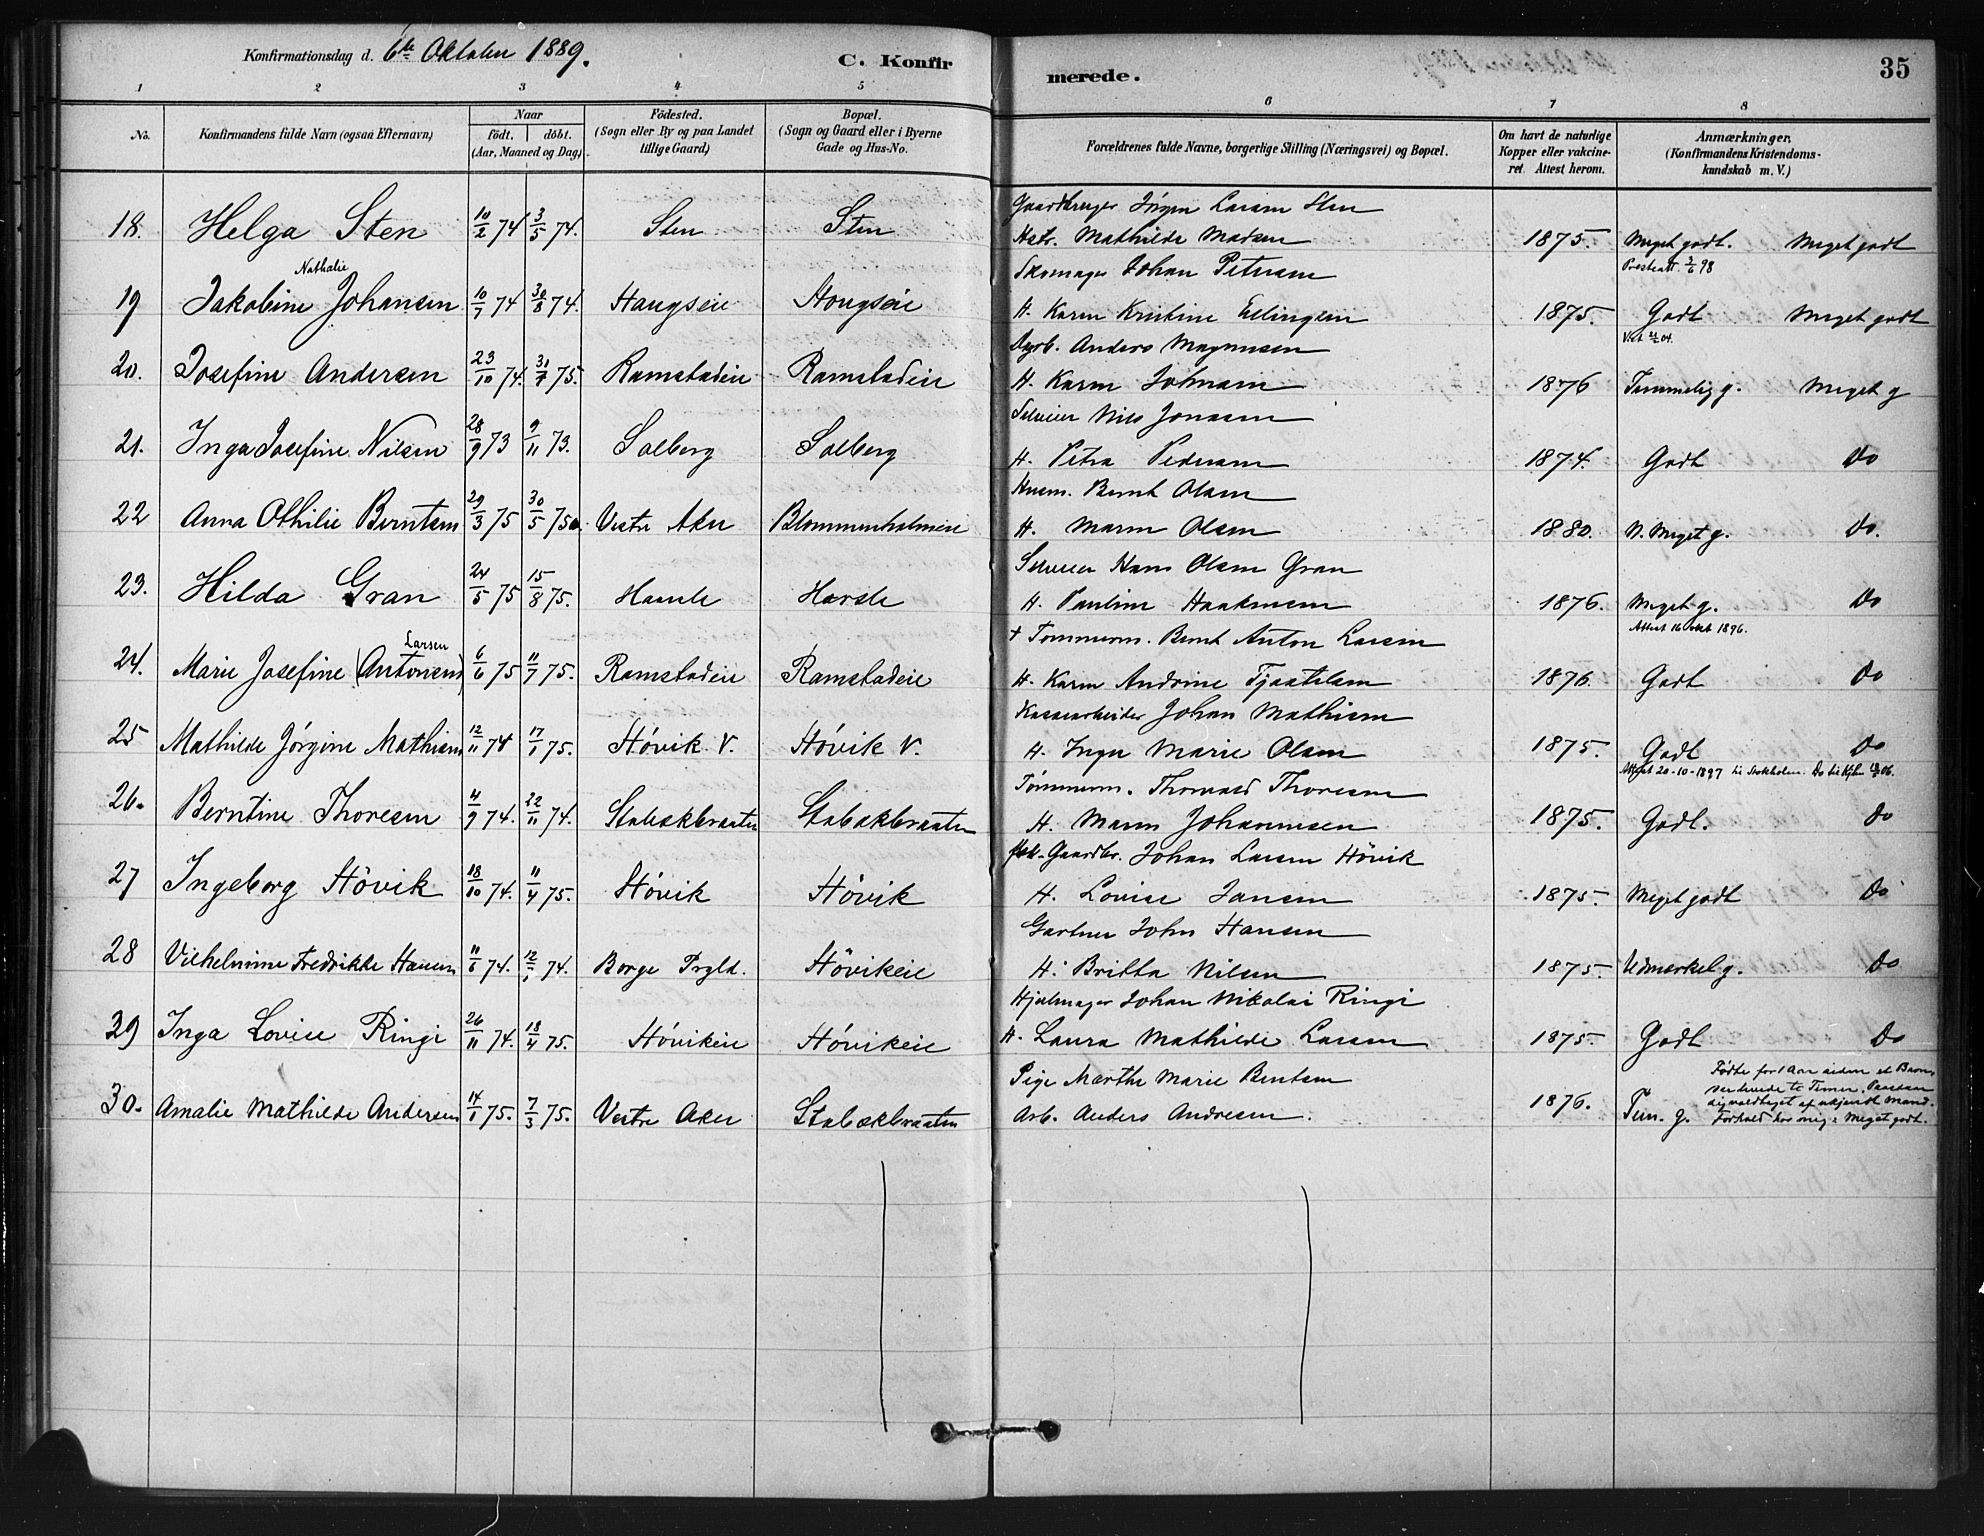 Konfirmationsdag d. 6te Oktober 1889.
C. Konfirmerede.
35
1 2 3 4 5 6 7 8
No.
Konfirmandens fulde Navn (ogsaa Efternavn)
Naar
födt. döbt.
(Aar, Maaned og Dag).
Födested.
(Sogn eller By og paa Landet
tillige Gaard)
Bopæl.
(Sogn og Gaard eller i Byerne
Gade og Hus-No.
Forældrenes fulde Navne, borgerlige Stilling (Næringsvei) og Bopæl.
Om havt de naturlige
Kopper eller vakcine-
ret. Attest herom.
Anmærkninger.
(Konfirmandens Kristendoms-
kundskab m. V.)
Gaardbruger Jörgen Larsen Sten
18. Helga Sten 10/2 74 3/5 74. Sten Sten Hstr. Mathilde Madsen 1875. Meget godt. Meget godt
Presteatt. 3/6 98
Skomager Johan Petersen
Nathalie
19 Jakobine Johansen 10/7 74 30/8 74. Haugseie Hougseie H. Karen Kristine Ellingsen 1875. Godt Meget godt
Dagb. Anders Magnusen
20. Josefine Andersen 23/10 74. 31/7 75. Ramstadeie Ramstadeie H. Karen Johnsen 1876 Temmelig g. Meget g
Selveier Nils Jonasen
21. Inga Josefine Nilsen 28/9 73 9/11 73. Solberg Solberg H. Petra Pedersen 1874. Godt Do
Husm. Bernt Olsen
22 Anna Othilie Berntsen 29/3 75 30/5 75. Vestre Aker Blommenholmeie H. Maren Olsen 1880. N. Meget g. Do.
Selveier Hans Olsen Gran
23. Hilda Gran 24/5 75 15/8 75. Harsle H. Pauline Haakensen 1876. Meget g. Do
Attest 16 1896.
+ Tømmerm. Bernt Anton Larsen
Larsen
24. Marie Josefine (Antonsen) 6/6 75 11/7 75. Ramstadeie Ramstadeie H. Karen Andrine 1876. Godt Do
Johan Mathisen
25 Mathilde Jörgine Mathisen 12/11 74 17/1 75. Hövik V. Hövik V. H. Inger Marie Olsen 1875. Godt Do
Attest 20-10-1897 til Stokholm. Do til Kjbn. 06.
Tømmerm. Thorvald Thoresen
26. Berntine Thoresen 4/9 74. 22/11 74. Stabækbraaten Stabækbraaten H. Maren Johannesen 1875. Godt. Do
Gaardbr. Johan Larsen Hövik
27 Ingeborg Hövik 18/10 74. 11/4 75. Hövik Hövik H. Lovise Jansen 1875. Meget godt Do
Gartner John Hansen
28 Vilhelmine Fredrikke Hansen 11/6 74. 74. Borge Prgld. Hövikeie H. Britta Nilsen 1875. Udmerket g. Do
Hjulmager Johan Nikolai Ringi
29 Inga Lovise Ringi 26/11 74. 18/4 75. Hövikeie Hövikeie H. Laura Mathilde Larsen 1875. Godt Do
Pige Marthe Marie Berntsen
30. Amalie Mathilde Andersen 14/1 75. 7/3 75. Vestre Aker Stabækbraaten Arb. Anders Andresen. 1876. Tem. g.
Födte for 1 Aar siden et Barn,
af ukjendt Mand.
Forhold hos mig: Meget godt.